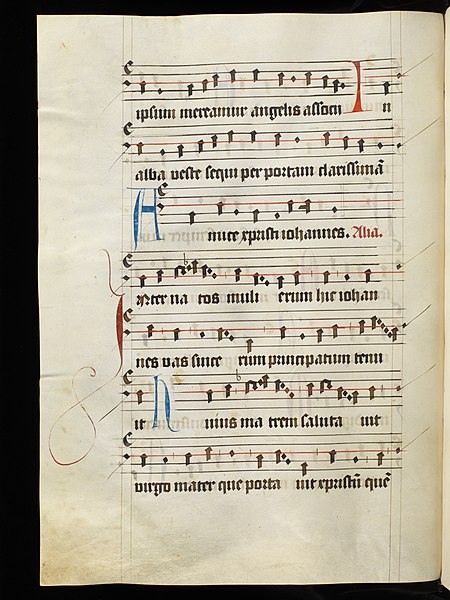 ipsum mereamur angelis associ In
alba veste sequi per portam clarissimā
Amice xpristi iohannes. Alia.
Inter na tos muli erum hic iohan
nes vas since rum principatum tenu
it Huius ma trem saluta uit
virgo mater que porta uit xpristū quē